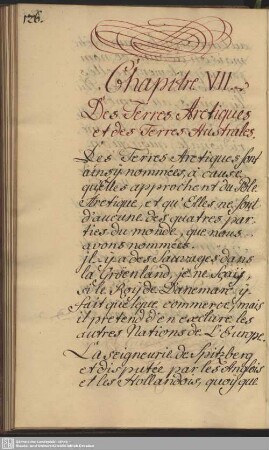 126.
Chapitre VII.
Des Terres Arctiques
et des Terres Australes.
Les Terres Arctiques sont
ainsy nommées, à cause
qu'elles approchent du Pôle
Arctique, et qu'Elles ne sont
d'aucune des quatres par-
ties du monde, que nous
avons nommées.
jl y a des Sauvages dans
la Groenland, je ne sçay
si le Roy de Danemarc y
fait quelque commerce, mais
il pretend d'en exclure les
autres Nations de L'Europe.
La seigneurie de Spitzberg
et disputée par les Anglois
et les Hollandois, quoy que